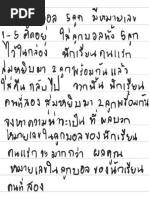 บอล 5ลูก มีหมายเลข
1-5 ติดอยู่ ใส่ลูกบอลทั้ง 5ลูก
ไว้ในกล่อง นักเรียนคนแรก
สุ่มหยิบมา 2ลูกพร้อมกันแล้ว
ใส่คืนกลับไป จากนั้น นักเรียน
คนที่สอง สุ่มหยิบมา 2ลูกพร้อมกัน
จงหาความน่าจะเป็น ที่ ผลบวก
หมายเลขในลูกบอล ของ นักเรียน
คนแรก มากกว่า ผลคูณ
หมายเลขใน ลูกบอล ของนักเรียน
คนที่สอง